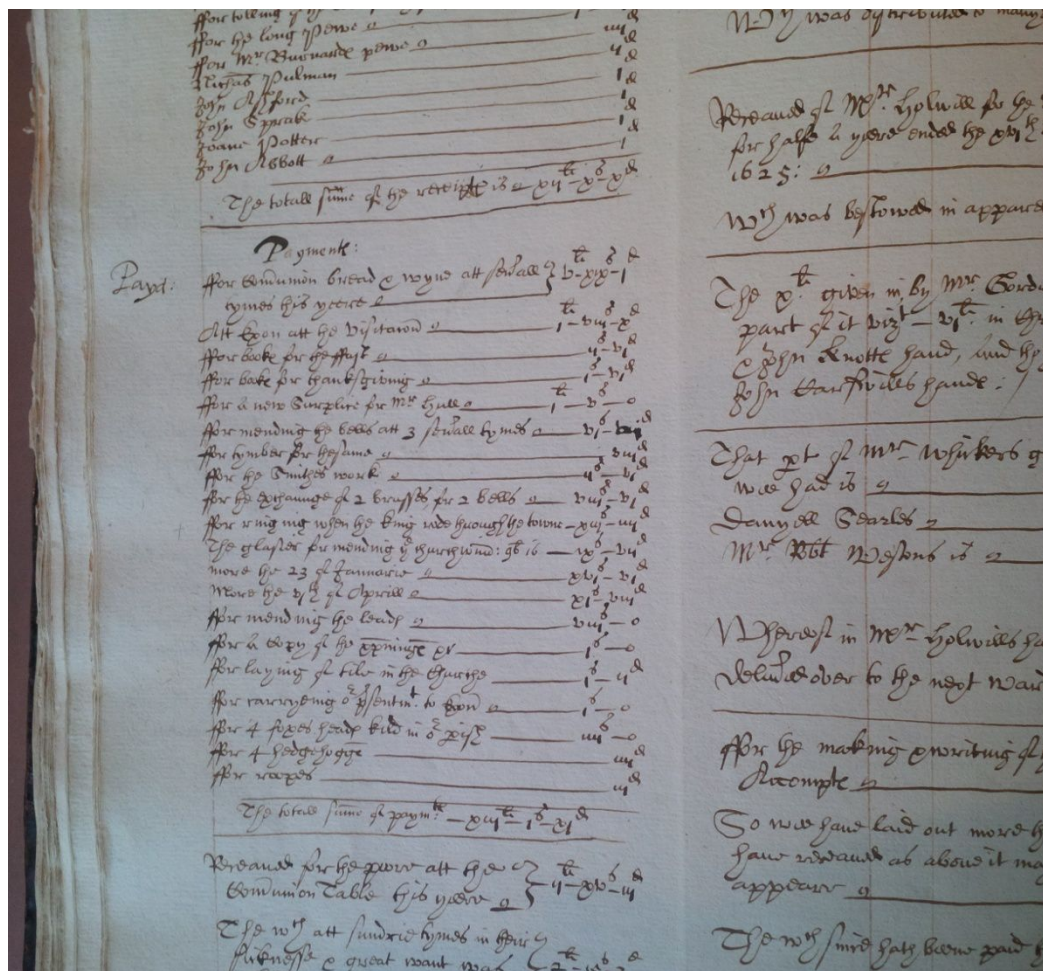 ffor tolling of the
ffor the long Pewe
ffor Mr Burnard pewe iiijd
Nicholas Pulman ijd
John Ashford jd
John Sprak jd
Joane Potter jd
John Abbott j
The totall sume of the receipts is xijli - xs - xd
Payments:
Payd: ffor Comunion bread & wyne att seuerall vli - xixs - jd
tymes this yeere
Att Exon att the Visitacon jli - viijs - xd
ffor books for the ffast ijs - vjd
ffor books for thanksgiving js - vjd
ffor a new Surplice for Mr Hull jli - vs - o
ffor mending the bells att 3 seuerall tymes vjs
ffor tymber for the same viijd
ffor the Smithes work ijs - vjd
ffor the exchainge of 2 brasses, for 2 bells viijs - vjd
ffor ringing when the king rode through the towne - xiijs - iiijd
The glasier for mending ye churchwind: is - ixs - viijd
more the 23 of Januarie xvjs - vjd
More the vjth of Aprill xjs - viijd
ffor mending the leads viijs - o
ffor a Copy of the js - o
ffor laying of tile in the Churche js - ijd
ffor carryeing or psentmt. to Exon js - o
ffor 4 foxes heads kild in or pish iiijs - o
ffor 4 hedgehoggs iiijd
ffor roapes iijd
The totall sume of paymts - xiijli - js - xjd
Receaued for the poore att the ijli - xvs - iijd
Comunion Table this yeere
The wch att sundrie tymes in their
sicknesse & great want was
Wch was distributed to many
Receaued of Mr. Holwill for the
for halfe a yeere ended the xvjth
1625:
Wch was bestowed in appare
The xli. given in by Mr Gord
part of it vizt - vjli. in
& John Knotts hand, And the
John Carswills hands:
That pt of Mr Whitkers g
wee had is
Danyell Searles
Mr Robt Westons is
Whereof in Mr Holwills ha
deliued over to the next War
ffor the making & writing of
Accompts
So wee have laid out more th
have receaued as above it ma
appeare
The wch sume hath beene paid